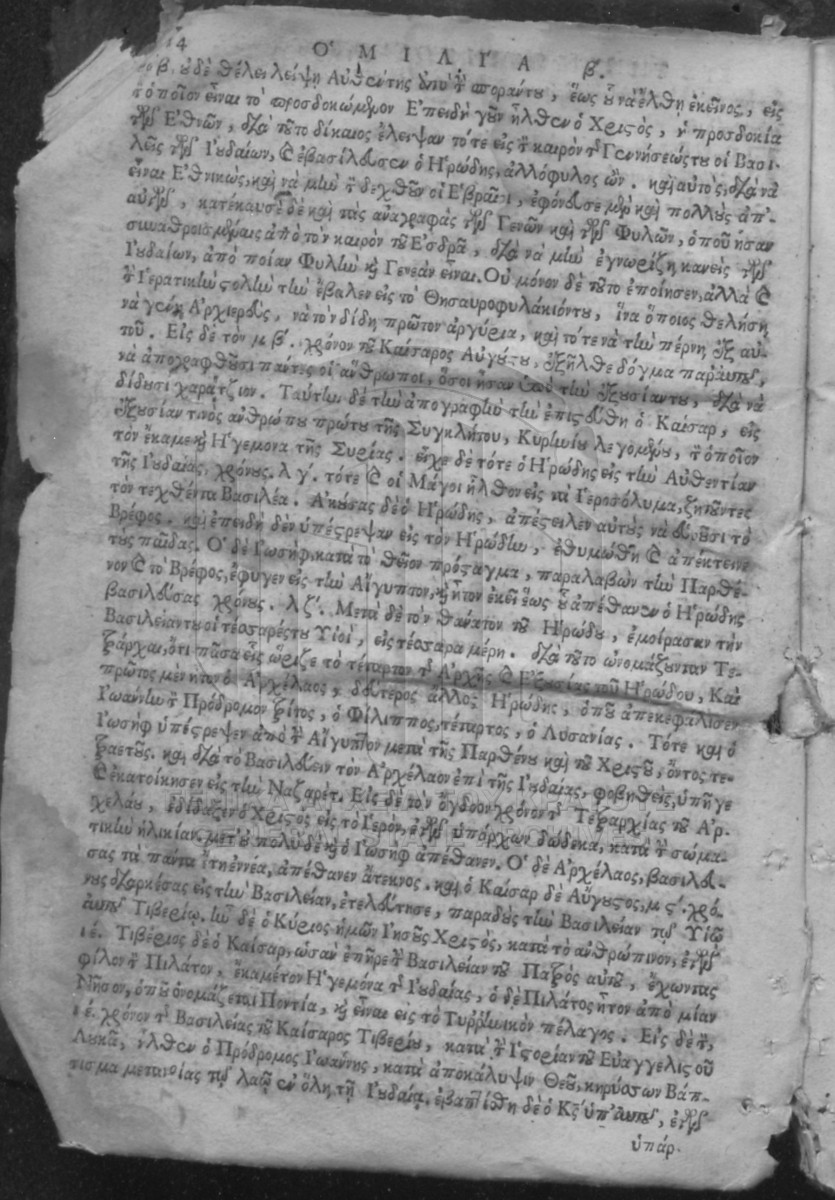 14 ΟΜΙΛΙΑ β.
ροβ, ουδὲ θέλει λείψῃ Αὐθέντης ἀπὸ τὸ σποράντου, ἕως οὗ νὰ ἔλθῃ ἐκεῖνος, εἰς
τὸ ὁποῖον εἶναι τὸ προσδοκώμενον Ἐπειδὴ γοῦν ἦλθεν ὁ Χριστὸς, ἡ προσδοκία
τῶν Ἐθνῶν, διὰ τοῦτο δίκαιος ἔλειψαν τότε εἰς τὸ καιρὸν τῆς Γεννήσεώς του οἱ Βασι-
λεῖς τῶν Ἰουδαίων, καὶ ἐβασίλευσεν ὁ Ἡρώδης, ἀλλόφυλος ὤν. καὶ αὐτὸς, διὰ νὰ
εἶναι Ἐθνικὸς, καὶ νὰ μὴν τὸ δεχθοῦν οἱ Ἑβραῖοι, ἐφόνευσε μὲν καὶ πολλοὺς ἀπ'
αὐτῶν, κατέκαυσε δὲ καὶ τὰς ἀναγραφὰς τῶν Γενῶν καὶ τῶν Φυλῶν, ὁποῦ ἦσαν
συναθροισμέναις ἀπὸ τὸν καιρὸν τοῦ Ἐσδρᾶ, διὰ νὰ μὴν ἐγνωρίζῃ κανεὶς τῶν
Ἰουδαίων, ἀπὸ ποίαν Φυλὴν καὶ Γενεὰν εἶναι. Οὐ μόνον δὲ τοῦτο ἐποίησεν, ἀλλὰ καὶ
τὴν Ἱερατικὴν στολὴν τὴν ἔβαλεν εἰς τὸ Θησαυροφυλάκιόντου, ἵνα ὅποιος θελήσῃ
νὰ γένῃ Ἀρχιερεὺς, νὰ τὸν δίδῃ πρῶτον ἀργύρια, καὶ τότε νὰ τὴν πέρνῃ ἐξ αὐ-
τοῦ. Εἰς δὲ τὸν μβ'. χρόνον τοῦ Καίσαρος Αὐγούστου, ἐξῆλθε δόγμα παρ' αὐτοῦ,
νὰ ἀπογραφθοῦσι πάντες οἱ ἄνθρωποι, ὅσοι ἦσαν ὑπὸ τὴν ἐξουσίαντου, διὰ νὰ
δίδουσι χαράτζιον. Ταύτην δὲ τὴν ἀπογραφὴν τὴν ἐπιστεύθη ὁ Καίσαρ, εἰς
ἐξουσίαν τινὸς ἀνθρώπου πρώτου τῆς Συγκλήτου, Κυρινίου λεγομένου, τὸ ὁποῖον
τὸν ἔκαμε καὶ Ἡγεμόνα τῆς Συρίας. εἶχε δὲ τότε ὁ Ἡρώδης εἰς τὴν Αὐθεντίαν
τῆς Ἰουδαίας, χρόνους. λγ'. τότε καὶ οἱ Μάγοι ἦλθον εἰς τὰ Ἱεροσόλυμα, ζητοῦντες
τὸν τεχθέντα Βασιλέα. Ἀκούσας δὲ ὁ Ἡρώδης, ἀπέστειλεν αὐτοὺς νὰ εὑροῦσι τὸ
Βρέφος. καὶ ἐπειδὴ δὲν ὑπέστρεψαν εἰς τὸν Ἡρώδην, ἐθυμώθη καὶ ἀπέκτεινε
τοὺς παῖδας. Ὁ δὲ Ἰωσὴφ, κατὰ τὸ θεῖον πρόσταγμα, παραλαβὼν τὴν Παρθέ-
νον καὶ τὸ Βρέφος, ἔφυγεν εἰς τὴν Αἴγυπτον, καὶ ἦτον ἐκεῖ ἕως οὗ ἀπέθανεν ὁ Ἡρώδης
βασιλεύσας χρόνους. λζ'. Μετὰ δὲ τὸν θάνατον τοῦ Ἡρώδου, ἐμοίρασαν τὴν
Βασιλείαντου οἱ τέσσαρέςτου Υἱοὶ, εἰς τέσσαρα μέρη. διὰ τοῦτο ὠνομάζουνταν Τε-
τράρχαι, ὅτι πᾶσα εἷς ὥριζε τὸ τέταρτον τῆς Ἀρχῆς καὶ Ἐξουσίας τοῦ Ἡρώδου, Καὶ
πρῶτος μὲν ἦτον ὁ Ἀρχέλαος, δεύτερος ἄλλος Ἡρώδης, ὁποῦ ἀπεκεφάλισεν
Ἰωάννην τὸν Πρόδρομον τρίτος, ὁ Φίλιππος, τέταρτος, ὁ Λυσανίας. Τότε καὶ ὁ
Ἰωσὴφ ὑπέστρεψεν ἀπὸ τὴν Αἴγυπτον μετὰ τῆς Παρθένου καὶ τοῦ Χριστοῦ, ὄντος τε-
τραετοῦς. καὶ διὰ τὸ Βασιλεύειν τὸν Ἀρχέλαον ἐπὶ τῆς Ἰουδαίας, φοβηθεὶς, ὑπῆγε
καὶ ἐκατοίκησεν εἰς τὴν Ναζαρέτ. Εἰς δὲ τὸν ὄγδοον χρόνον τῆς Τετραρχίας τοῦ Ἀρ-
χελάου, ἐδίδαξεν ὁ Χριστὸς εἰς τὸ Ἱερὸν, ἐτῶν ὑπάρχων δώδεκα, κατὰ τὴν σωμα-
τικὴν ἡλικίαν. μετ' οὐ πολὺ δὲ καὶ ὁ Ἰωσὴφ ἀπέθανεν. Ὁ δὲ Ἀρχέλαος, βασιλεύ-
σας τὰ πάντα ἔτη ἐννέα, ἀπέθανεν ἄτεκνος. καὶ ὁ Καίσαρ δὲ Αὔγουστος, μς'. χρό-
νους διαρκέσας εἰς τὴν Βασιλείαν, ἐτελεύτησε, παραδοὺς τὴν Βασιλείαν τῷ Υἱῷ
αὐτοῦ Τιβερίῳ. ἦν δὲ ὁ Κύριος ἡμῶν Ἰησοῦς Χριστὸς, κατὰ τὸ ἀνθρώπινον, ἐτῶν
ιέ. Τιβέριος δὲ ὁ Καίσαρ, ὡσὰν ἐπῆρε τὴν Βασιλείαν τοῦ Πατρὸς αὐτοῦ, ἔχωντας
φίλον τὸν Πιλάτον, ἔκαμέτον Ἡγεμόνα τῆς Ἰουδαίας, ὁ δὲ Πιλάτος ἦτον ἀπὸ μίαν
Νῆσον, ὁποῦ ὀνομάζεται Ποντία, καὶ εἶναι εἰς τὸ Τυρρηνικὸν πέλαγος. Εἰς δὲ τὸν,
ιέ. χρόνον τῆς Βασιλείας τοῦ Καίσαρος Τιβερίου, κατὰ τὴν Ἱστορίαν τοῦ Εὐαγγελιστοῦ
Λουκᾶ, ἦλθεν ὁ Πρόδρομος Ἰωάννης, κατὰ ἀποκάλυψιν Θεοῦ, κηρύσσων Βάπ-
τισμα μετανοίας τῷ λαῷ ἐν ὅλῃ τῇ Ἰουδαίᾳ. ἐβαπτίσθη δὲ ὁ Κς ὑπ' αὐτοῦ, ἐτῶν
ὑπάρ-